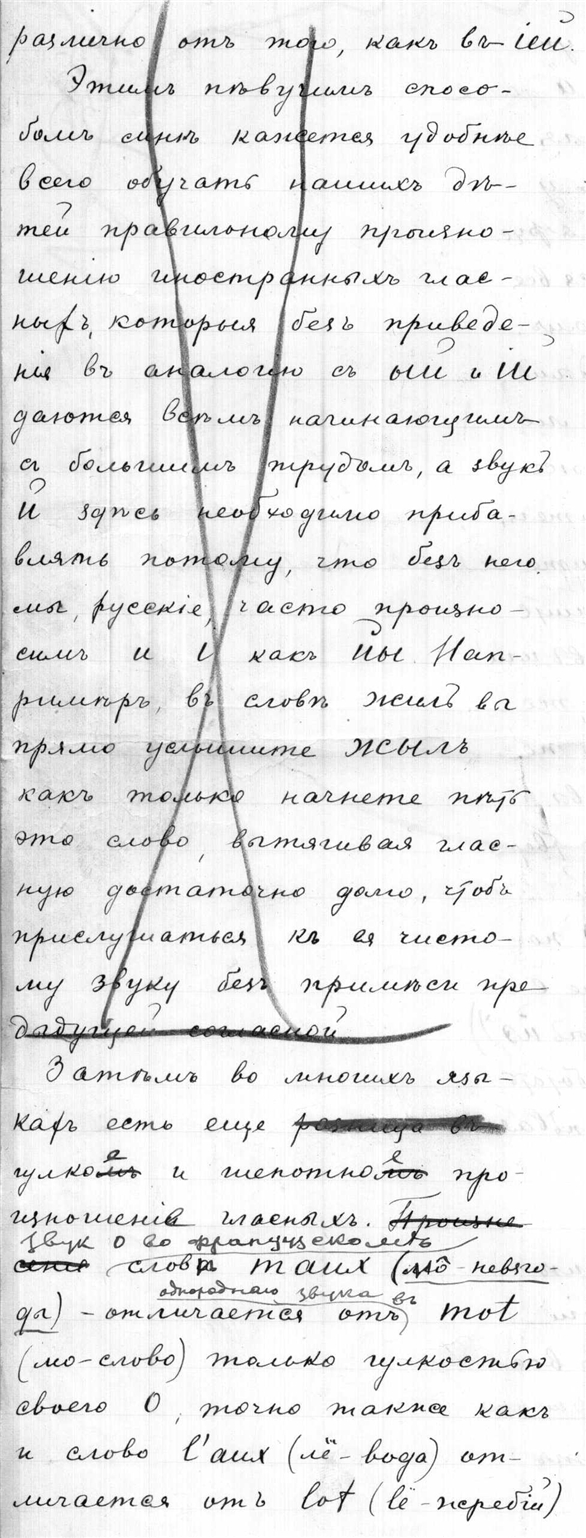 различно отъ того, какъ въ ІЕЙ.
Этимъ пѣвучимъ спосо-
бомъ мнѣ кажется удобнѣе
всего обучать нашихъ дѣ-
тей правильному произно-
шенію иностранныхъ глас-
ныхъ, которыя безъ приведе-
нія въ аналогію съ ЫЙ и ІЙ
даются всѣмъ начинающимъ
съ большимъ трудомъ, а звукъ
Й здѣсь необходимо приба-
влять потому, что безъ него
мы, русскіе, часто произно-
симъ И и І какъ ЙЫ. Нап-
римѣръ, въ словѣ ЖИЛЪ вы
прямо услышите ЖЫЛЪ
какъ только начнете пѣть
это слово, вытягивая глас-
ную достаточно долго, чтобъ
прислушаться къ ея чисто-
му звуку безъ примѣси пре-
дыдущей согласной
Затѣмъ во многихъ язы-
кахъ есть еще разница въ
гулкомъ е и шепотномъ е про-
изношеніе гласныхъ. Произне
звукъ О во французскомъ
сеніе словѣ maux (мô-невзго-
однороднаго звука въ
ды) - отличается отъ mot
(мо-слово) только гулкостью
своего О, точно также какъ
и слово l'aux (лё-вода) от-
личается отъ lot (lё-жребій)